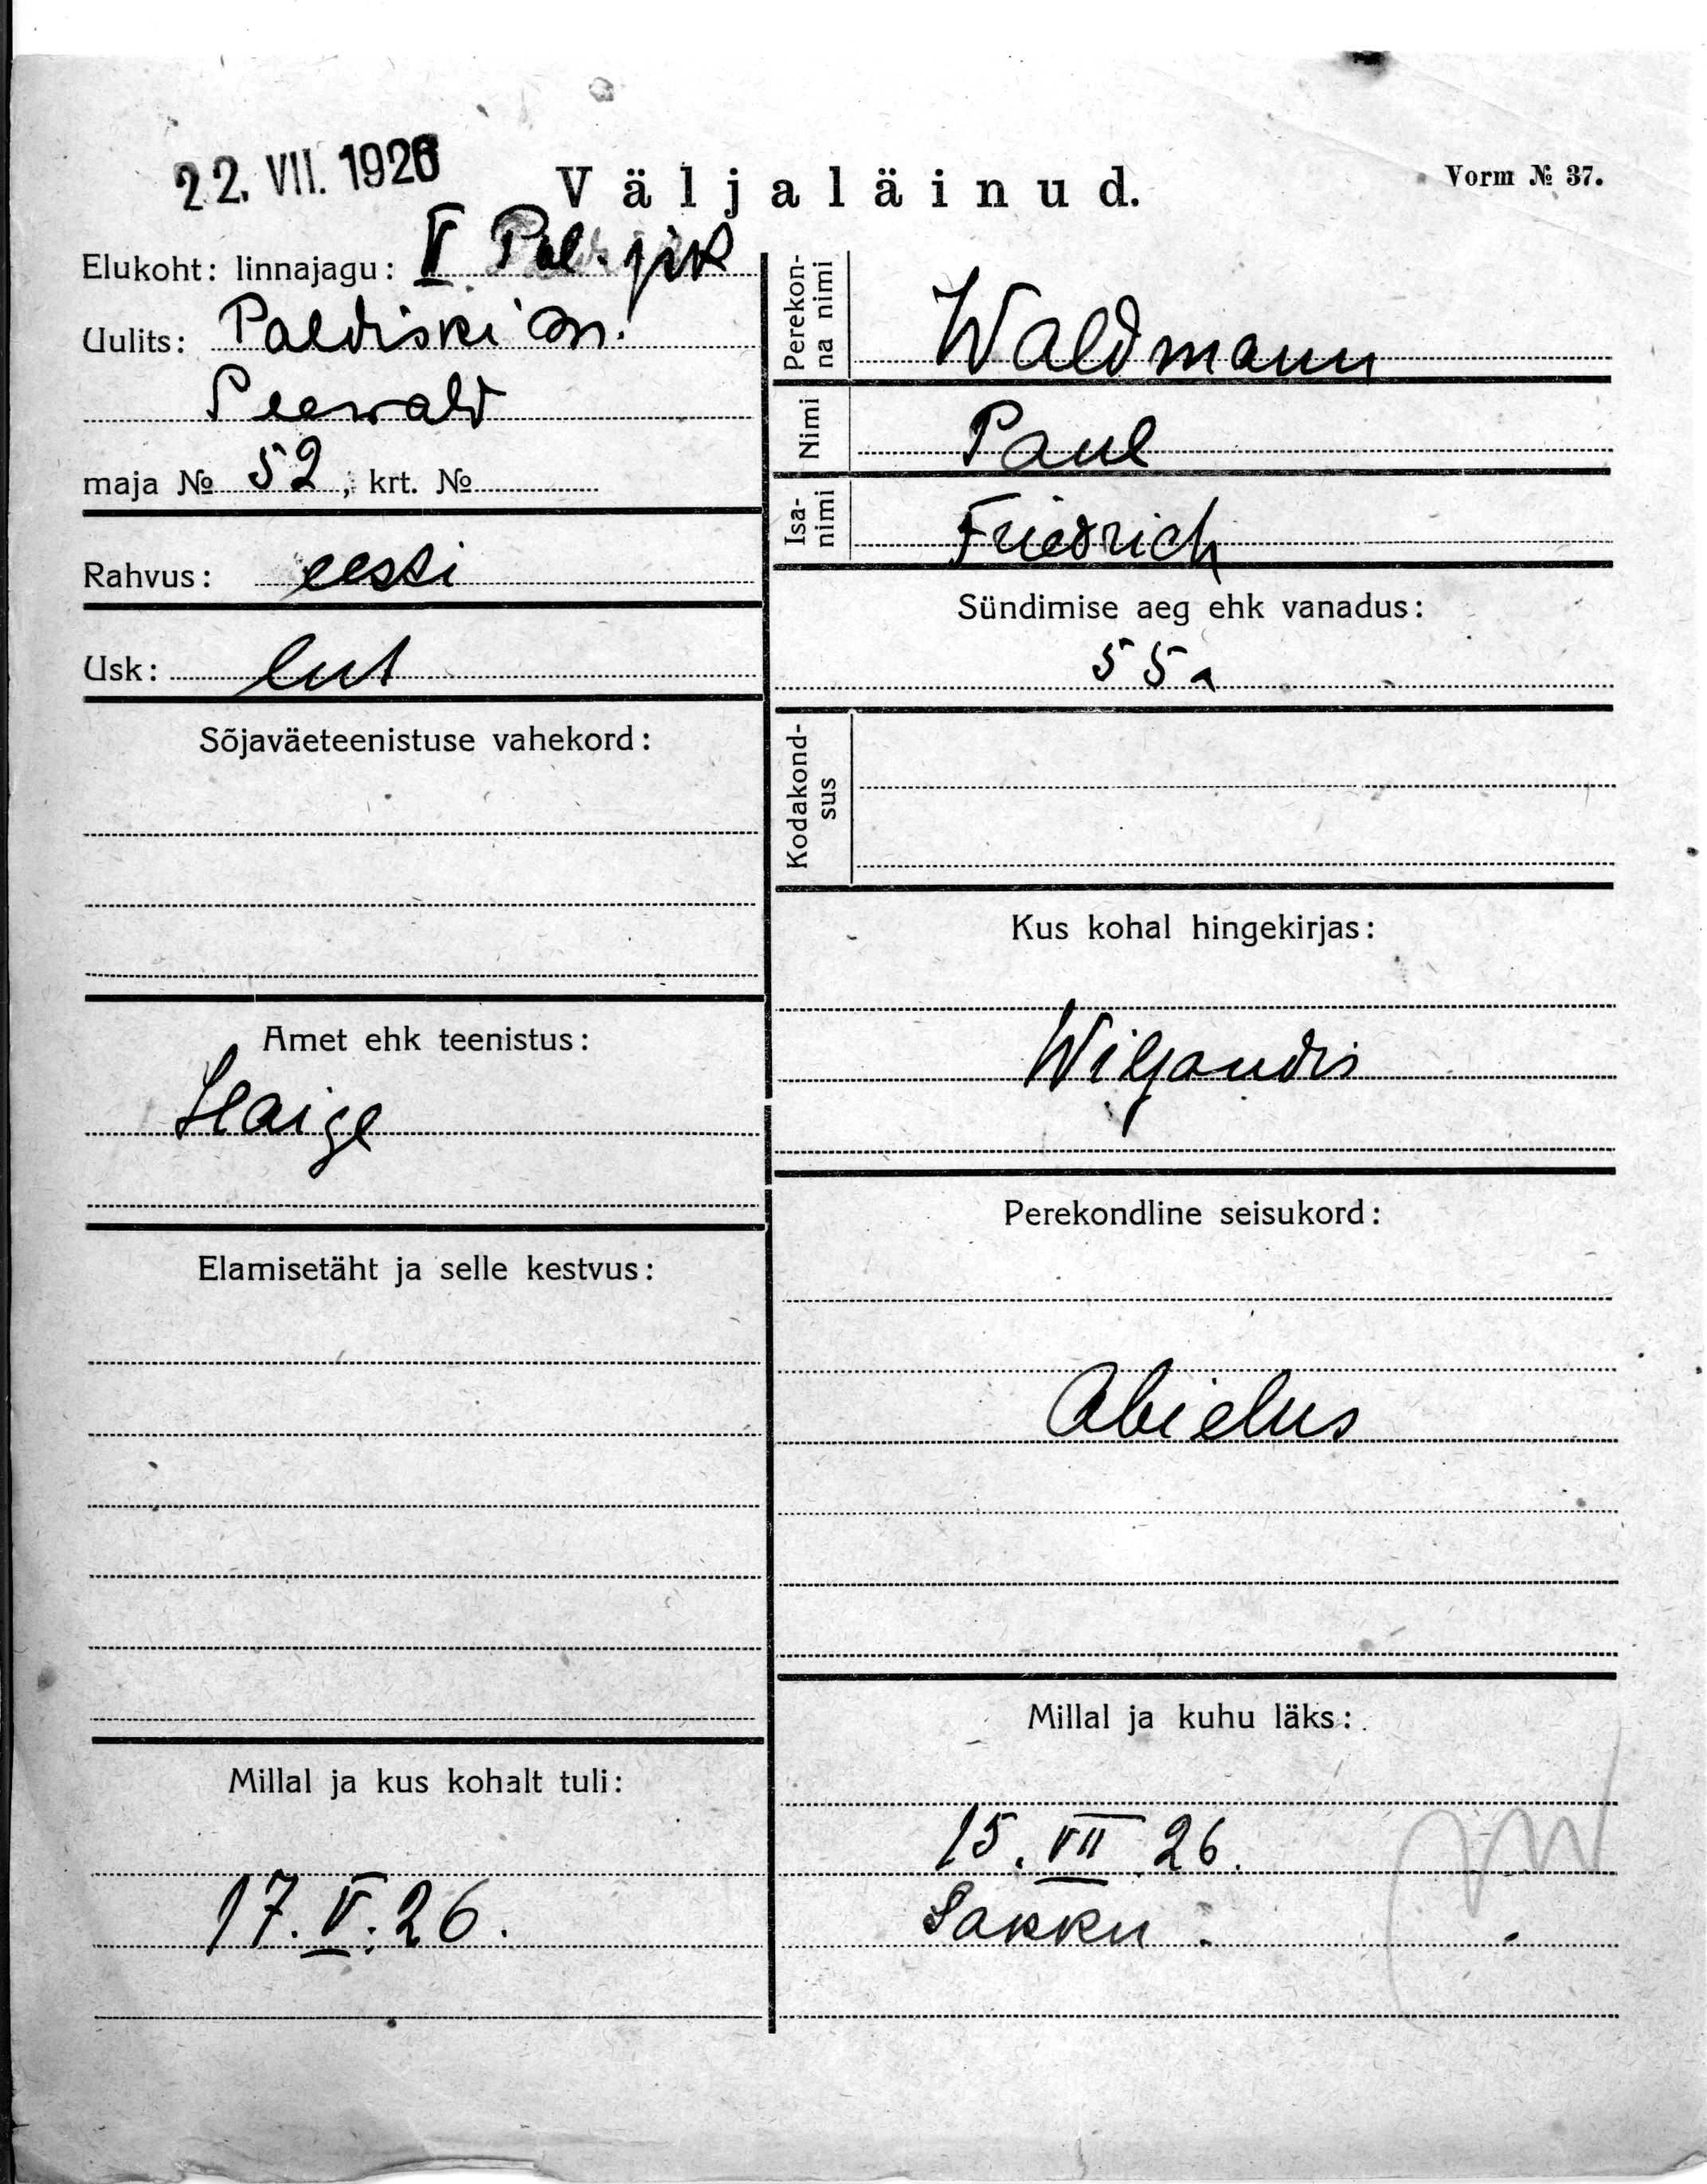 22. VII. 1926
Väljaläinud.
Vorm № 37.
Elukoht: linnajagu: V Pol. jsk
Uulits: Paldiski m.
Seewald
maja № 52, krt. №
Rahvus: eesti
Usk: lut
Sõjaväeteenistuse vahekord:
Amet ehk teenistus:
Haige
Elamisetäht ja selle kestvus:
Millal ja kus kohalt tuli:
17. V. 26.
Perekon-
na nimi
Waldmann
Nimi
Paul
Isa-
nimi
Friedrich
Sündimise aeg ehk vanadus:
55 a
Kodakond-
sus
Kus kohal hingekirjas:
Wiljandis
Perekondline seisukord:
Abielus
Millal ja kuhu läks:
15. VII 26.
Sakku.